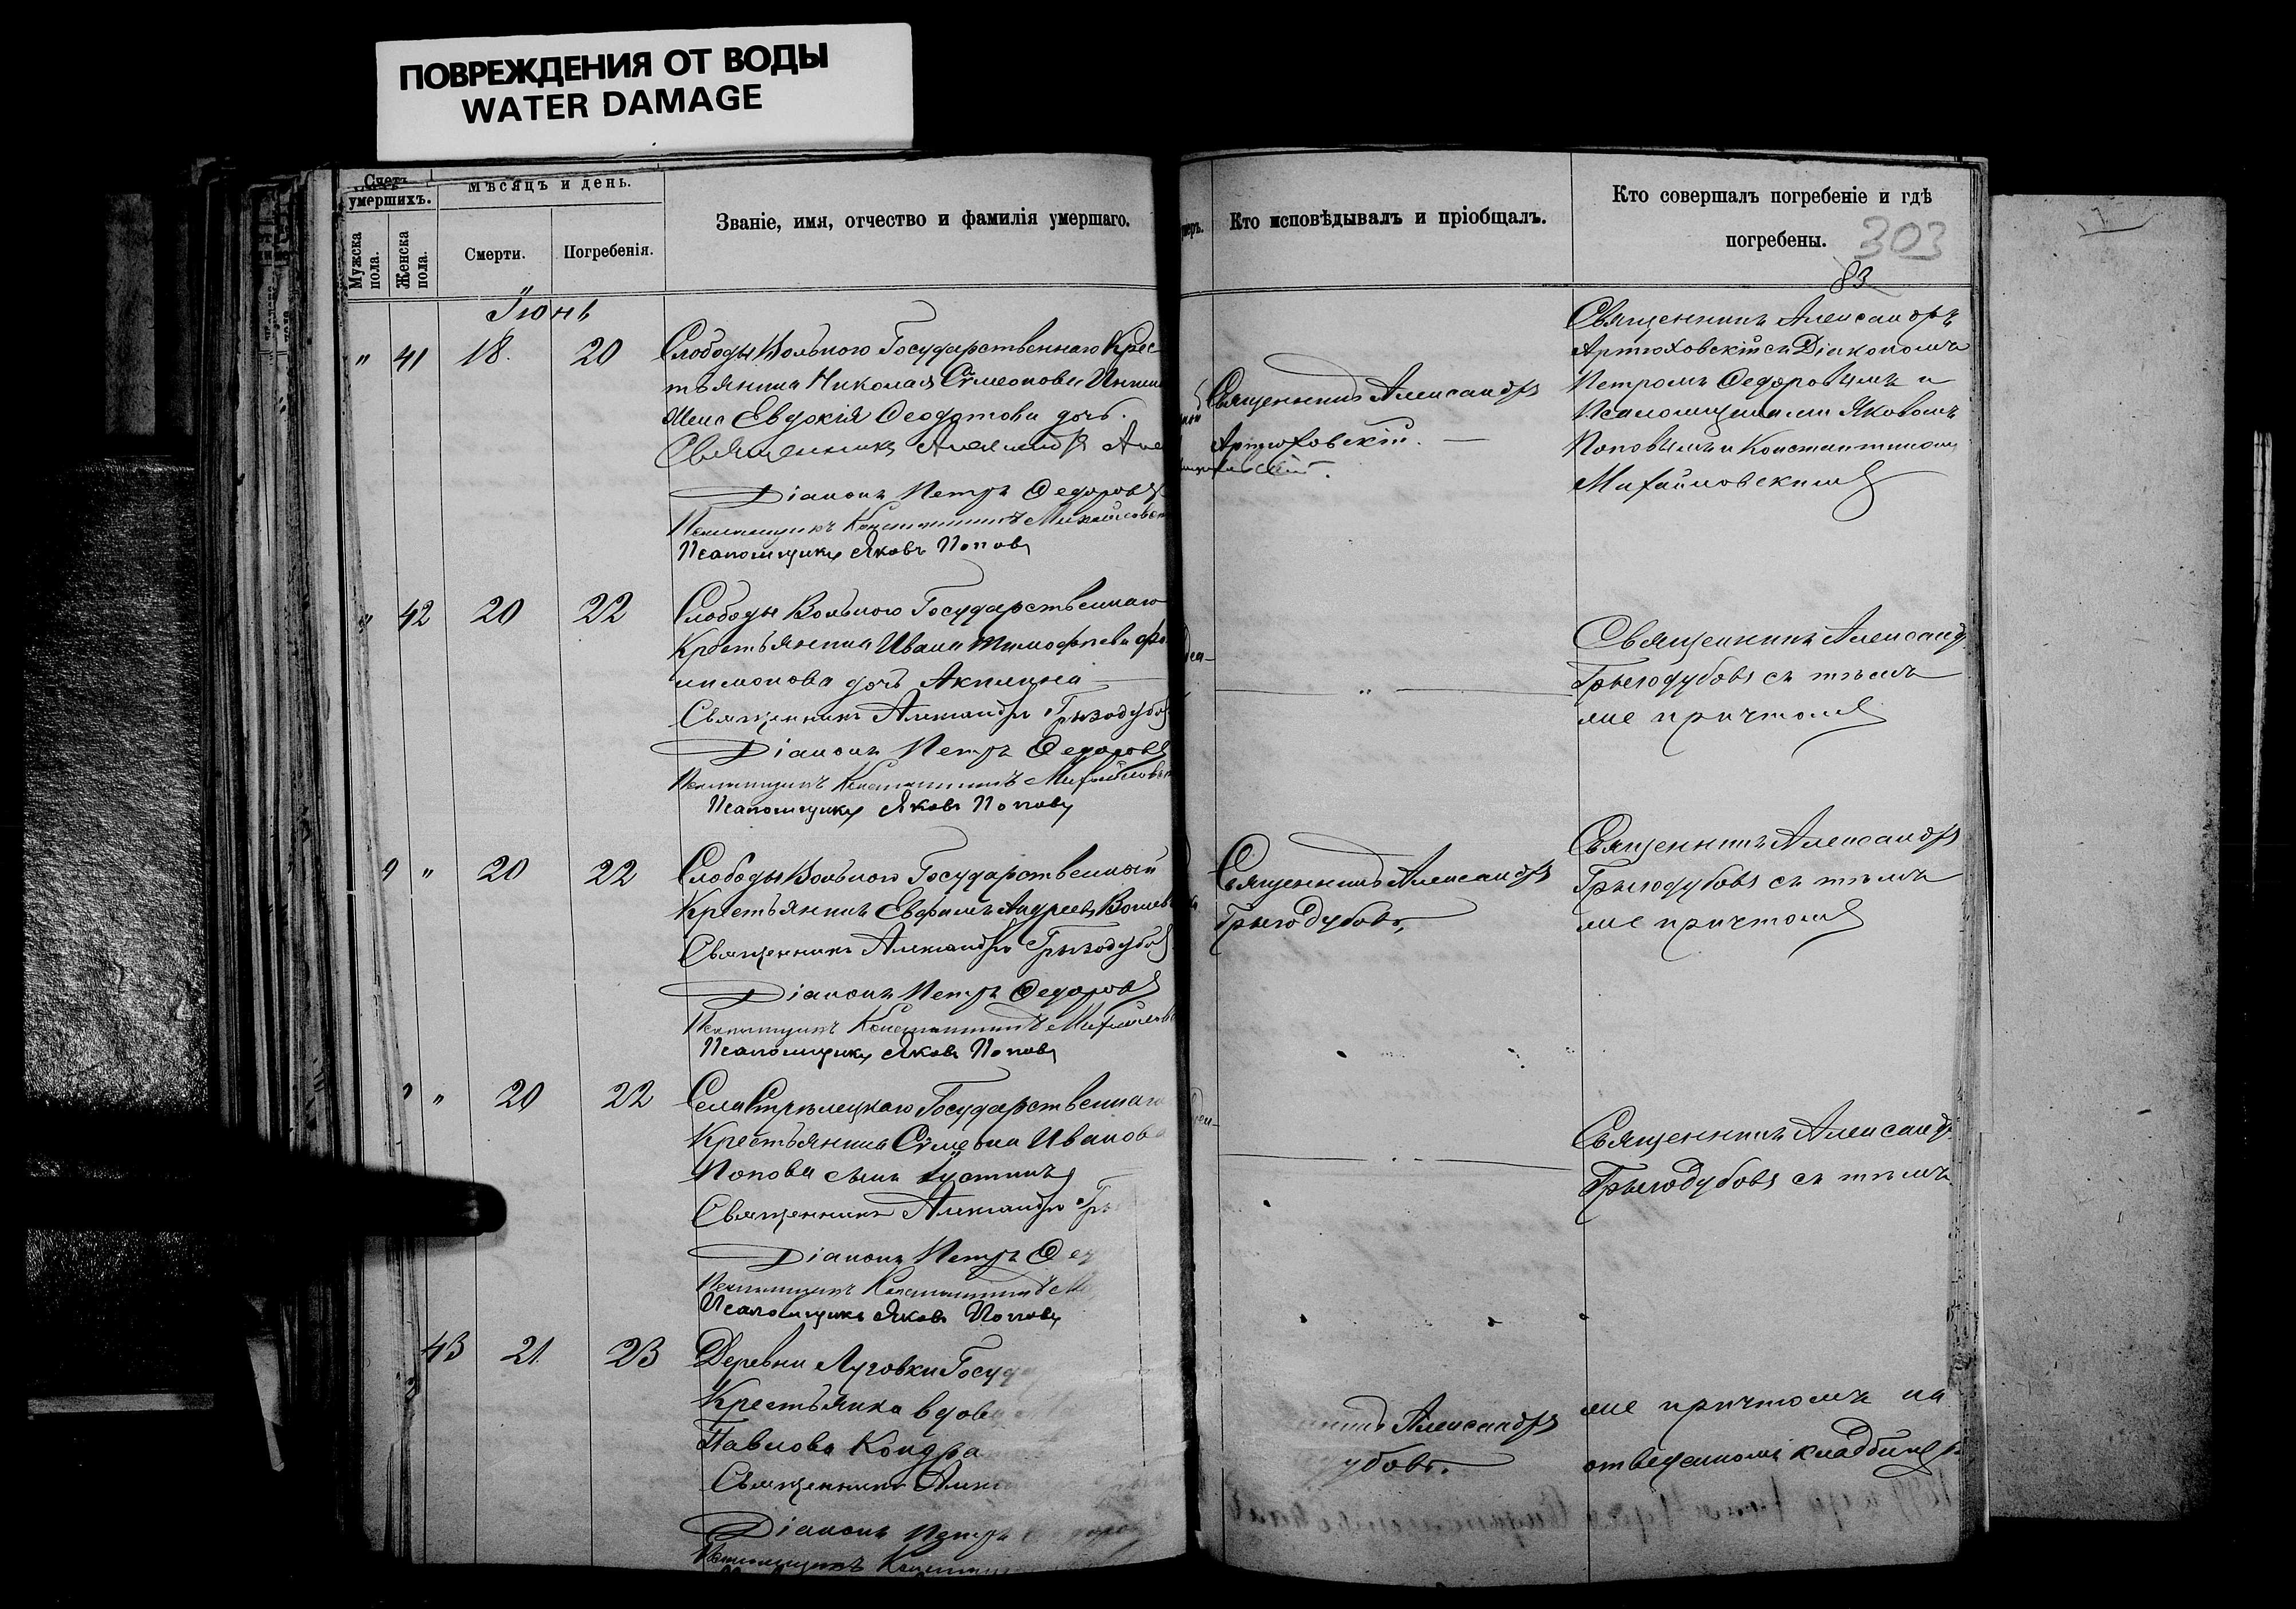 ПОВРЕЖДЕНИЯ ОТ ВОДЫ
WATER DAMAGE
Счетъ умершихъ.
Мужска пола.
Женска пола.
Мѣсяцъ и день.
Смерти.
Погребенія.
Званіе, имя, отчество и фамилія умершаго.
Кто исповѣдывалъ и пріобщалъ.
Кто совершалъ погребеніе и гдѣ
погребены.
303
83
Іюнь
" 41 18. 20
Слободы Вольного Государственнаго Крес
тьянина Николая Сѵмеонова
Жена Евдокія Феодотова дочь.
Священникъ Александръ
Діаконъ Петръ Федоровъ
Псаломщикъ Константинъ Михайловск
Псаломщикъ Яковъ Поповъ
Священникъ Александръ
Артюховскій. —
Священникъ Александръ
Артюховскій съ Діакономъ
Петромъ Федоровымъ и
Псаломщиками Яковомъ
Поповымъ и Константиномъ
Михайловскимъ
" 42 20 22
Слободы Вольного Государственнаго
Крестьянина Ивана Тимофеева Фи
лимонова дочь Акилина
Священникъ Александръ Грызодубовъ
Діаконъ Петръ Федоровъ
Псаломщикъ Константинъ Михайловск
Псаломщикъ Яковъ Поповъ
— " —
Священникъ Александръ
Грызодубовъ съ тѣмъ
же причтомъ
9 " 20 22
Слободы Вольного Государственный
Крестьянинъ Евфимъ Андреевъ
Священникъ Александръ Грызодубовъ
Діаконъ Петръ Федоровъ
Псаломщикъ Константинъ Михайловс
Псаломщикъ Яковъ Поповъ
Священникъ Александръ
Грызодубовъ,
Священникъ Александръ
Грызодубовъ съ тѣмъ
же причтомъ
" 20 22
Села Стрѣлецкаго Государственнаго
Крестьянина Сѵмеона Иванова
Попова сынъ Іустинъ
Священникъ Александръ Гры
Діаконъ Петръ Фед
Псаломщикъ Константинъ М
Псаломщикъ Яковъ Поповъ
Священникъ Александръ
Грызодубовъ съ тѣмъ
43 21 23
Деревни Луговки Госуда
Крестьянка вдова
Павлова Кондра
Священникъ Алекса
Діаконъ Петръ
Псаломщикъ Константин
Александръ
убовъ.
же причтомъ на
отведенномъ кладбищѣ